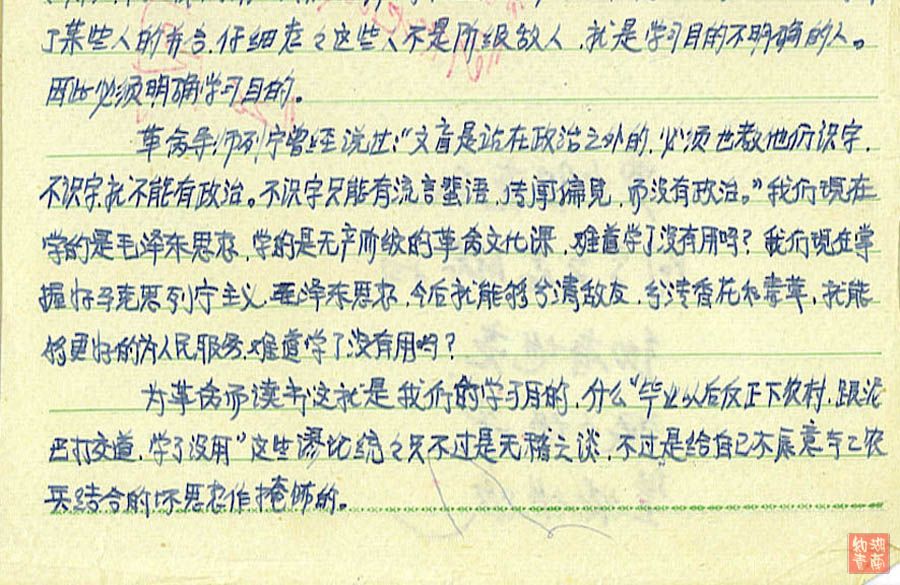 了某些人的布告，仔细考之这些人不是阶级敌人，就是学习目的不明确的人。
因此必须明确学习目的。
革命导师列宁曾经说过："文盲是站在政治之外的，必须也教他们识字，
不识字就不能有政治。不识字只能有流言蜚语，传闻偏见，而没有政治。"我们现在
学的是毛泽东思想，学的是无产阶级的革命文化课，难道学了没有用吗？我们现在掌
握好马克思列宁主义、毛泽东思想，今后就能够分清敌友，分清香花和毒草，就能
够更好的为人民服务，难道学了没有用吗？
为革命而读书这就是我们的学习目的，什么"毕业以后反正下农村，跟泥
巴打交道，学了没用"这些谬比统之只不过是无稽之谈，不过是给自己不愿意与工农
兵结合的坏思想作掩饰的。